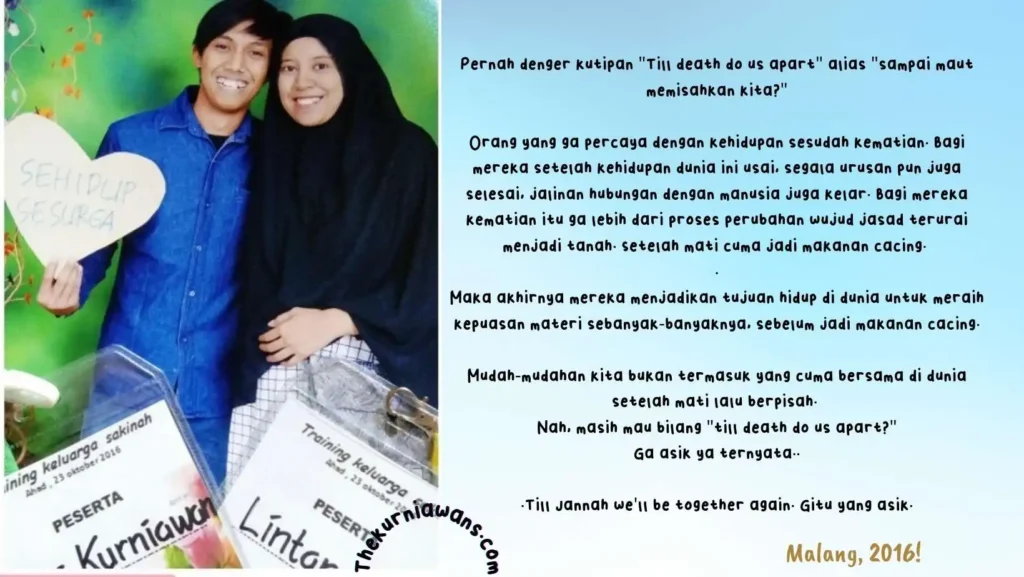 SEHIDUP
SESURGA
Training keluarga sakinah
Ahad, 23 oktober 2016
PESERTA
Kurniawan
Training keluarga
Ahad, 23 oktober 20
PESERT
Lintan
Thekurniawans.com
Pernah denger kutipan "Till death do us apart" alias "sampai maut
memisahkan kita?"
Orang yang ga percaya dengan kehidupan sesudah kematian. Bagi
mereka setelah kehidupan dunia ini usai, segala urusan pun juga
selesai, jalinan hubungan dengan manusia juga kelar. Bagi mereka
kematian itu ga lebih dari proses perubahan wujud jasad terurai
menjadi tanah. setelah mati cuma jadi makanan cacing.
.
Maka akhirnya mereka menjadikan tujuan hidup di dunia untuk meraih
kepuasan materi sebanyak-banyaknya, sebelum jadi makanan cacing.
Mudah-mudahan kita bukan termasuk yang cuma bersama di dunia
setelah mati lalu berpisah.
Nah, masih mau bilang "till death do us apart?"
Ga asik ya ternyata..
.Till Jannah we'll be together again. Gitu yang asik.
Malang, 2016!